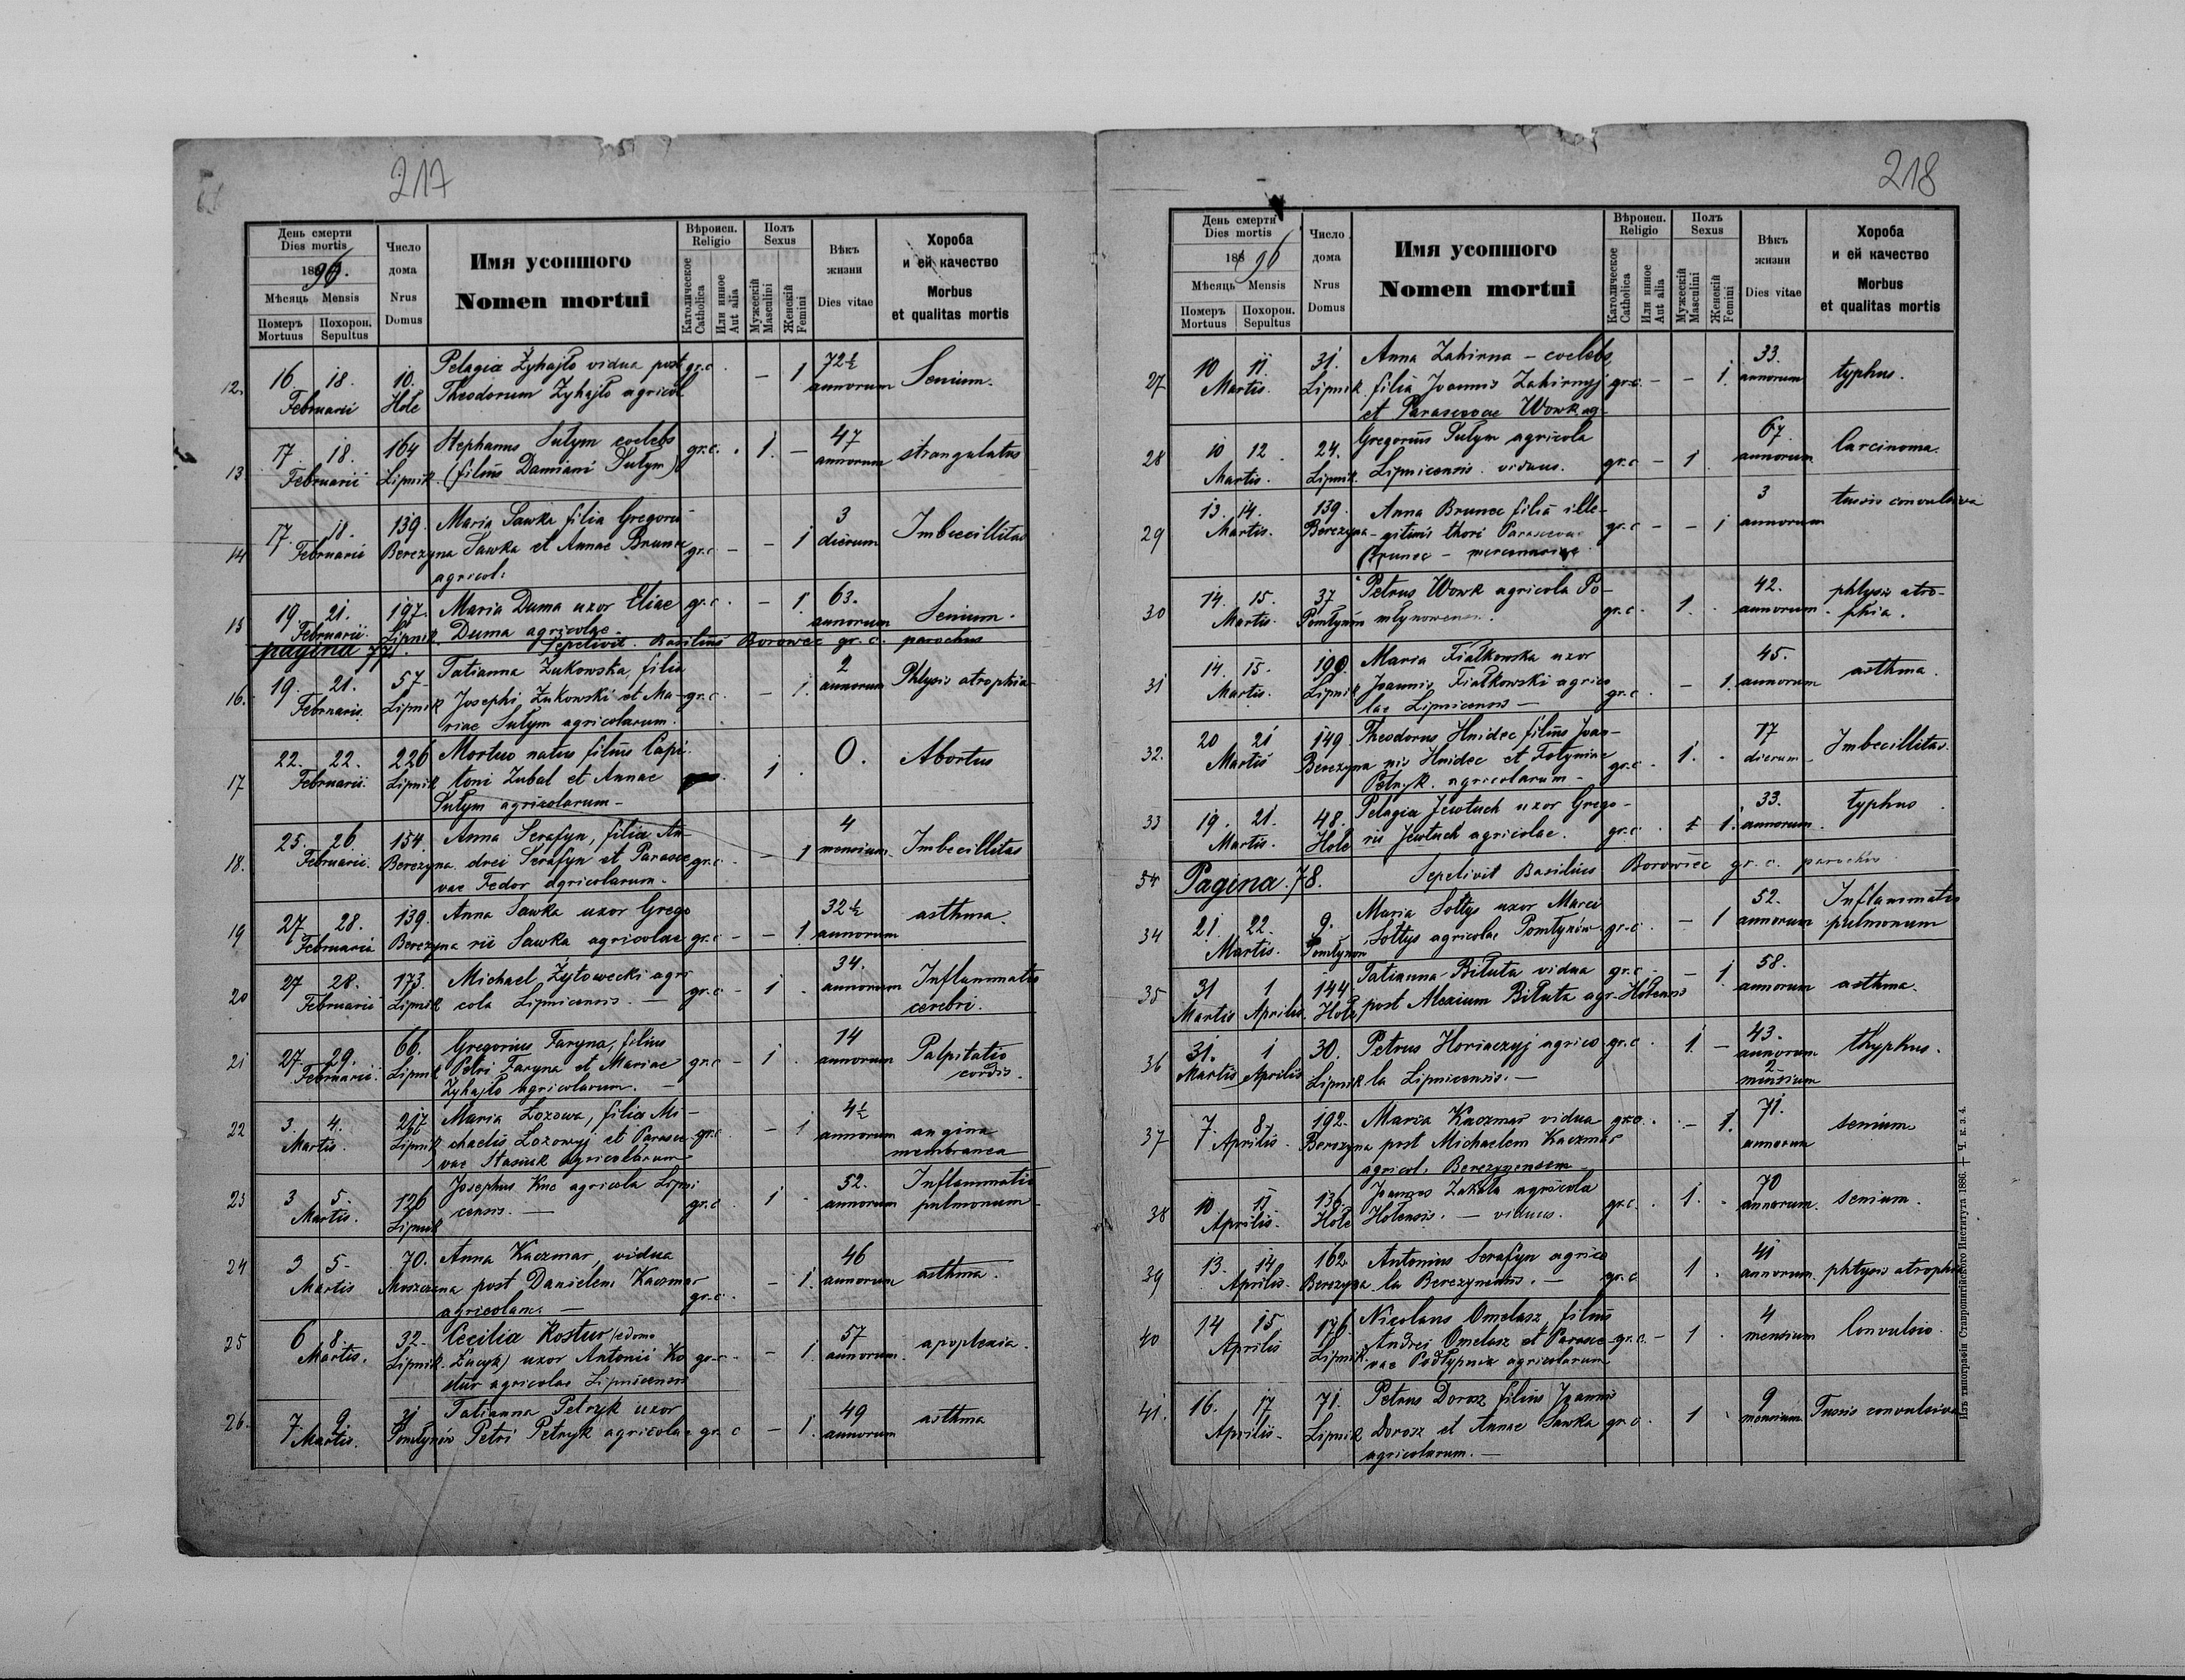 217
День смерти
Dies mortis
1896.
Мѣсяць Mensis
Померъ Mortuus
Похорон. Sepultus
Число дома
Nrus Domus
Имя усопшого
Nomen mortui
Вѣроисп. Religio
Католическое Catholica
Или инное Aut alia
Полъ Sexus
Мужескій Masculini
Женскій Femini
Вѣкъ жизни
Dies vitae
Хороба и ей качество
Morbus et qualitas mortis
12. 16 18. 10. Pelagia Żyhajło vidua post gr.c. — 1 72½ Senium.
Februarii Hole Theodorum Zyhajło agricol annorum
13 17. 18. 164 Stephanus Sułym coelebs gr.c. 1. — 47 strangulatus
Februarii Lipnik (filius Damiani Sułym) annorum
14 17. 18. 139. Maria Sawka filia Gregorii 3 Imbecillitas
Februarii Berezyna Sawka et Annae Brunec gr.c. — — 1 dierum
agricol:
15 19 21. 197. Maria Duma uxor Eliae gr.c. — 1. 63. Senium.
Februarii. Lipnik Duma agricolae. annorum
pagina 77. Sepelivit. Basilius Borowec gr. c. parochus
16. 19. 21. 57 Tatianna Żukowska, filia 2 Phtysis atrophia
Februarii. Lipnik Josephi Żukowski et Ma- gr.c. — 1. annorum
riae Sułym agricolarum.
17 22. 22. 226 Mortuo natus filius Capi- 0. Abortus
Februarii. Lipnik toni Zubal et Annae 1.
Sułym agricolarum —
18. 25. 26. 154. Anna Serafyn, filia An- 4 Imbecillitas
Februarii. Berezyna drei Serafyn et Parasce gr.c. — 1 mensium
vae Fedor agricolarum —
19 27 28. 139. Anna Sawka uxor Grego 32½ asthma.
Februarii Berezyna rii Sawka agricolae gr.c. — — 1. annorum
20 27 28. 173. Michael Żytowecki agri 34. Inflammatio
Februarii Lipnik cola Lipnicensis. — gr.c. — 1 . annorum cerebri.
21 27 29. 66. Gregorius Faryna, filius 14 Palpitatio
Februarii. Lipnik Petri Faryna et Mariae gr.c — 1 . annorum cordis.
Zyhajło agricolarum. —
22 3. 4. 217 Maria Łozowa, filia Mi- 4½ angina
Martis. Lipnik chaelis Łozowyj et Parasce gr.c. — 1 annorum membranea
vae Stasiuk agricolarum
23 3 5. 126 Josephus Kuc agricola Lipni 52. Inflammatio
Martis. Lipnik censis. — gr.c 1 annorum pulmonum
24 3 5- 70. Anna Kaczmar, vidua 46 asthma.
Martis Moszczana post Danielem Kaczmar gr.c. — 1. annorum
agricolam. —
25 6 8. 32. Cecilia Kostur (edomo 57 apoplexia.
Martis. Lipnik. Zucyk) uxor Antonii Ko gr.c. — 1. annorum.
stur agricolae Lipnicensis
26. 7. 9. 31 Tatianna Petryk uxor 49 asthma
Martis. Pomłynów Petri Petryk agricolae gr. c — 1. annorum
218
День смерти
Dies mortis
1896
Мѣсяць Mensis
Померъ Mortuus
Похорон. Sepultus
Число дома
Nrus Domus
Имя усопшого
Nomen mortui
Вѣроисп. Religio
Католическое Catholica
Или инное Aut alia
Полъ Sexus
Мужескій Masculini
Женскій Femini
Вѣкъ жизни
Dies vitae
Хороба и ей качество
Morbus et qualitas mortis
27 10 11. 31. Anna Zahirna — coelebs, 33. typhus.
Martis. Lipnik filia Joannis Zahirnyj gr.c. — — 1. annorum
et Parascevae Wowk ag-
28 10 12. 24. Gregorius Sułym agricola 67. Carcinoma.
Martis. Lipnik. Lipnicensis. viduus. gr.c — 1. annorum
29 13. 14. 139. Anna Brunec filia ille- 3 tussis convulsiva
Martis. Berezyna -gitimi thori Parascevae gr.c — — 1 annorum
Brunec — mercenariae
30 14. 15. 37 Petrus Wowk agricola Po- gr.c. 1. 42. phtysis atro-
Martis. Pomłynów młynowensis. annorum phia.
31 14. 15. 190. Maria Fiałkowska uxor 45. asthma.
Martis. Lipnik Joannis Fiałkowski agrico gr.c. — 1. annorum
lae Lipnicensis —
32. 20 21 149. Theodorus Hnidec filius Joan- 17 Imbecillitas.
Martis Berezyna nis Hnidec et Fotyniae gr.c. 1. dierum
Petryk. agricolarum —
33 19. 21. 48. Pelagia Jewtuch uxor Grego- 33. typhus
Martis. Hole rii Jewtuch agricolae. gr.c. 1. annorum.
54 Pagina. 78. Sepelivit Basilius Borowiec gr. c. parochus
34 21. 22. 9. Maria Sołtys uxor Marci 52. Inflammatio
Martis. Pomłynów Sołtys agricolae Pomłynów gr.c. — 1 annorum pulmonum
35 31 1 144 Tatianna Biłuta vidua gr.c. — 1. 58. asthma.
Martis Aprilis. Hole, post Alexium Biłuta agr. Holensis annorum
36 31. 1 30. Petrus Horiaczyj agrico gr.c. 1. — 43. thyphus.
Martis Aprilis Lipnik la Lipnicensis. — annorum
2 mensium
37 7. 8. 192. Maria Kaczmar vidua gr.c. — 1. 71. senium
Aprilis. Berezyna post Michaelem Kaczmar annorum
agricol. Berezynensem —
38 10. 11. 136. Joannes Zakała agricola 70 senium.
Aprilis. Hole Holensis. — viduus. gr.c. 1. annorum.
39 13. 14. 162 Antonius Serafyn agrico 41 phtysis atrophia
Aprilis. Berezyna la Berezynensis. — gr.c 1 . annorum.
40 14 15. 176. Nicolaus Omelasz, filius 4 Convulsio.
Aprilis Lipnik. Andrei Omelasz et Parasce- gr.c. — 1 . mensium
vae agricolarum
41. 16. 17 71. Petrus Dorosz filius Joannis 9 Tussis convulsiva
Aprilis. Lipnik Dorosz et Annae Sawka gr.c. 1 . mensium
agricolarum. —
Изъ типографіи Ставропигійского Института 1886. + Ч. к. з. 4.